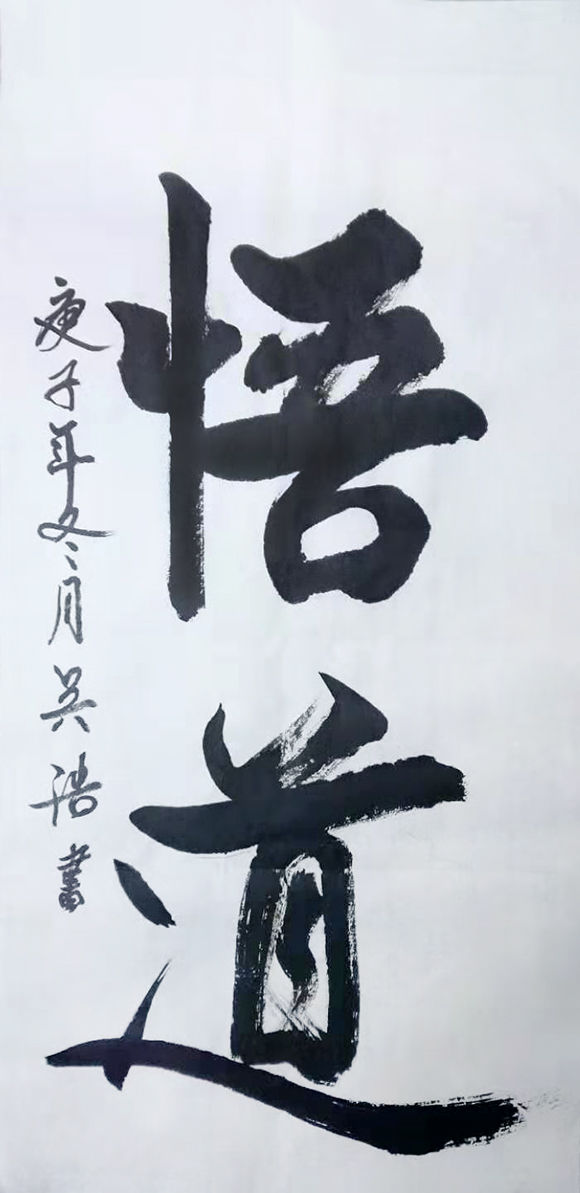 悟道
庚子年冬月吴浩书